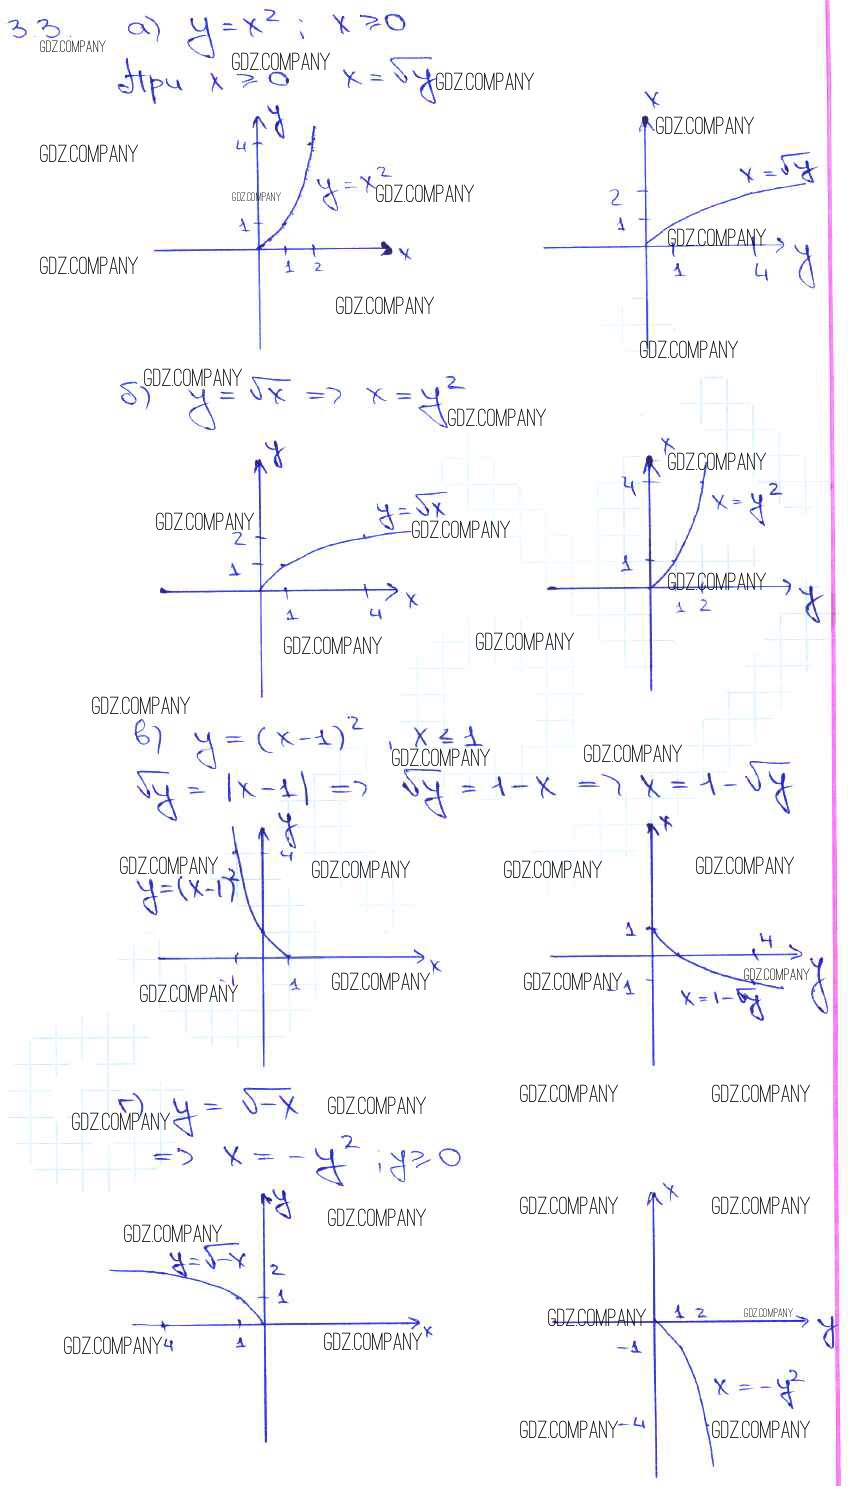 3.3. а) y = x² ; x ≥ 0
GDZ.COMPANY
GDZ.COMPANY
При x ≥ 0 x = √y
GDZ.COMPANY
y
x
4
GDZ.COMPANY
GDZ.COMPANY
GDZ.COMPANY
y = x²
GDZ.COMPANY
x = √y
2
1
1
GDZ.COMPANY
GDZ.COMPANY
1 2 x
1 4 y
GDZ.COMPANY
GDZ.COMPANY
GDZ.COMPANY
б) y = √x => x = y²
GDZ.COMPANY
y
x
GDZ.COMPANY
4
y = √x
x = y²
GDZ.COMPANY
GDZ.COMPANY
2
1
1
GDZ.COMPANY
1 4 x
1 2 y
GDZ.COMPANY
GDZ.COMPANY
GDZ.COMPANY
в) y = (x-1)² , x ≤ 1
GDZ.COMPANY
GDZ.COMPANY
√y = |x-1| => √y = 1-x => x = 1-√y
y
x
4
GDZ.COMPANY
GDZ.COMPANY
GDZ.COMPANY
GDZ.COMPANY
y=(x-1)²
1
4
x
y
GDZ.COMPANY
-1 1
GDZ.COMPANY
GDZ.COMPANY
GDZ.COMPANY
-1
x=1-√y
г) y = √-x
GDZ.COMPANY
GDZ.COMPANY
GDZ.COMPANY
GDZ.COMPANY
=> x = -y² ; y ≥ 0
y
x
GDZ.COMPANY
GDZ.COMPANY
GDZ.COMPANY
GDZ.COMPANY
y=√-x
2
1
1 2
GDZ.COMPANY
GDZ.COMPANY
x
y
GDZ.COMPANY
4 1
GDZ.COMPANY
-1
x = -y²
GDZ.COMPANY
-4
GDZ.COMPANY